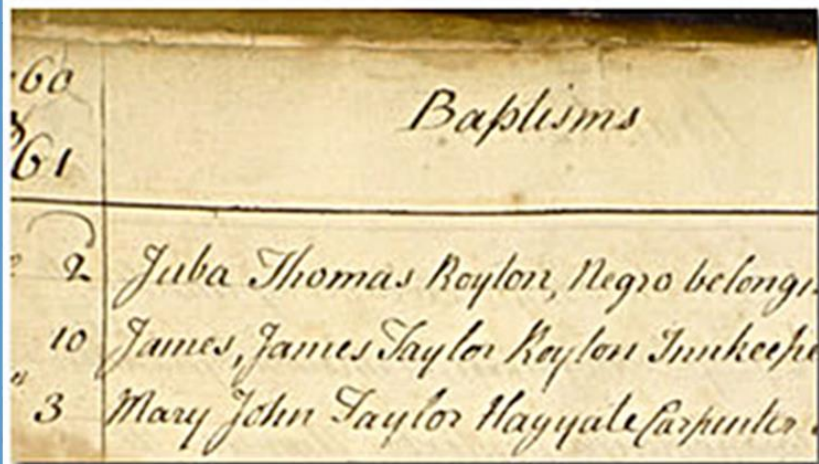 60
Baptisms
&
61
2 Juba Thomas Royton, Negro belongi
10 James, James Taylor Royton Innkeepe
3 Mary John Taylor Haggate Carpenter